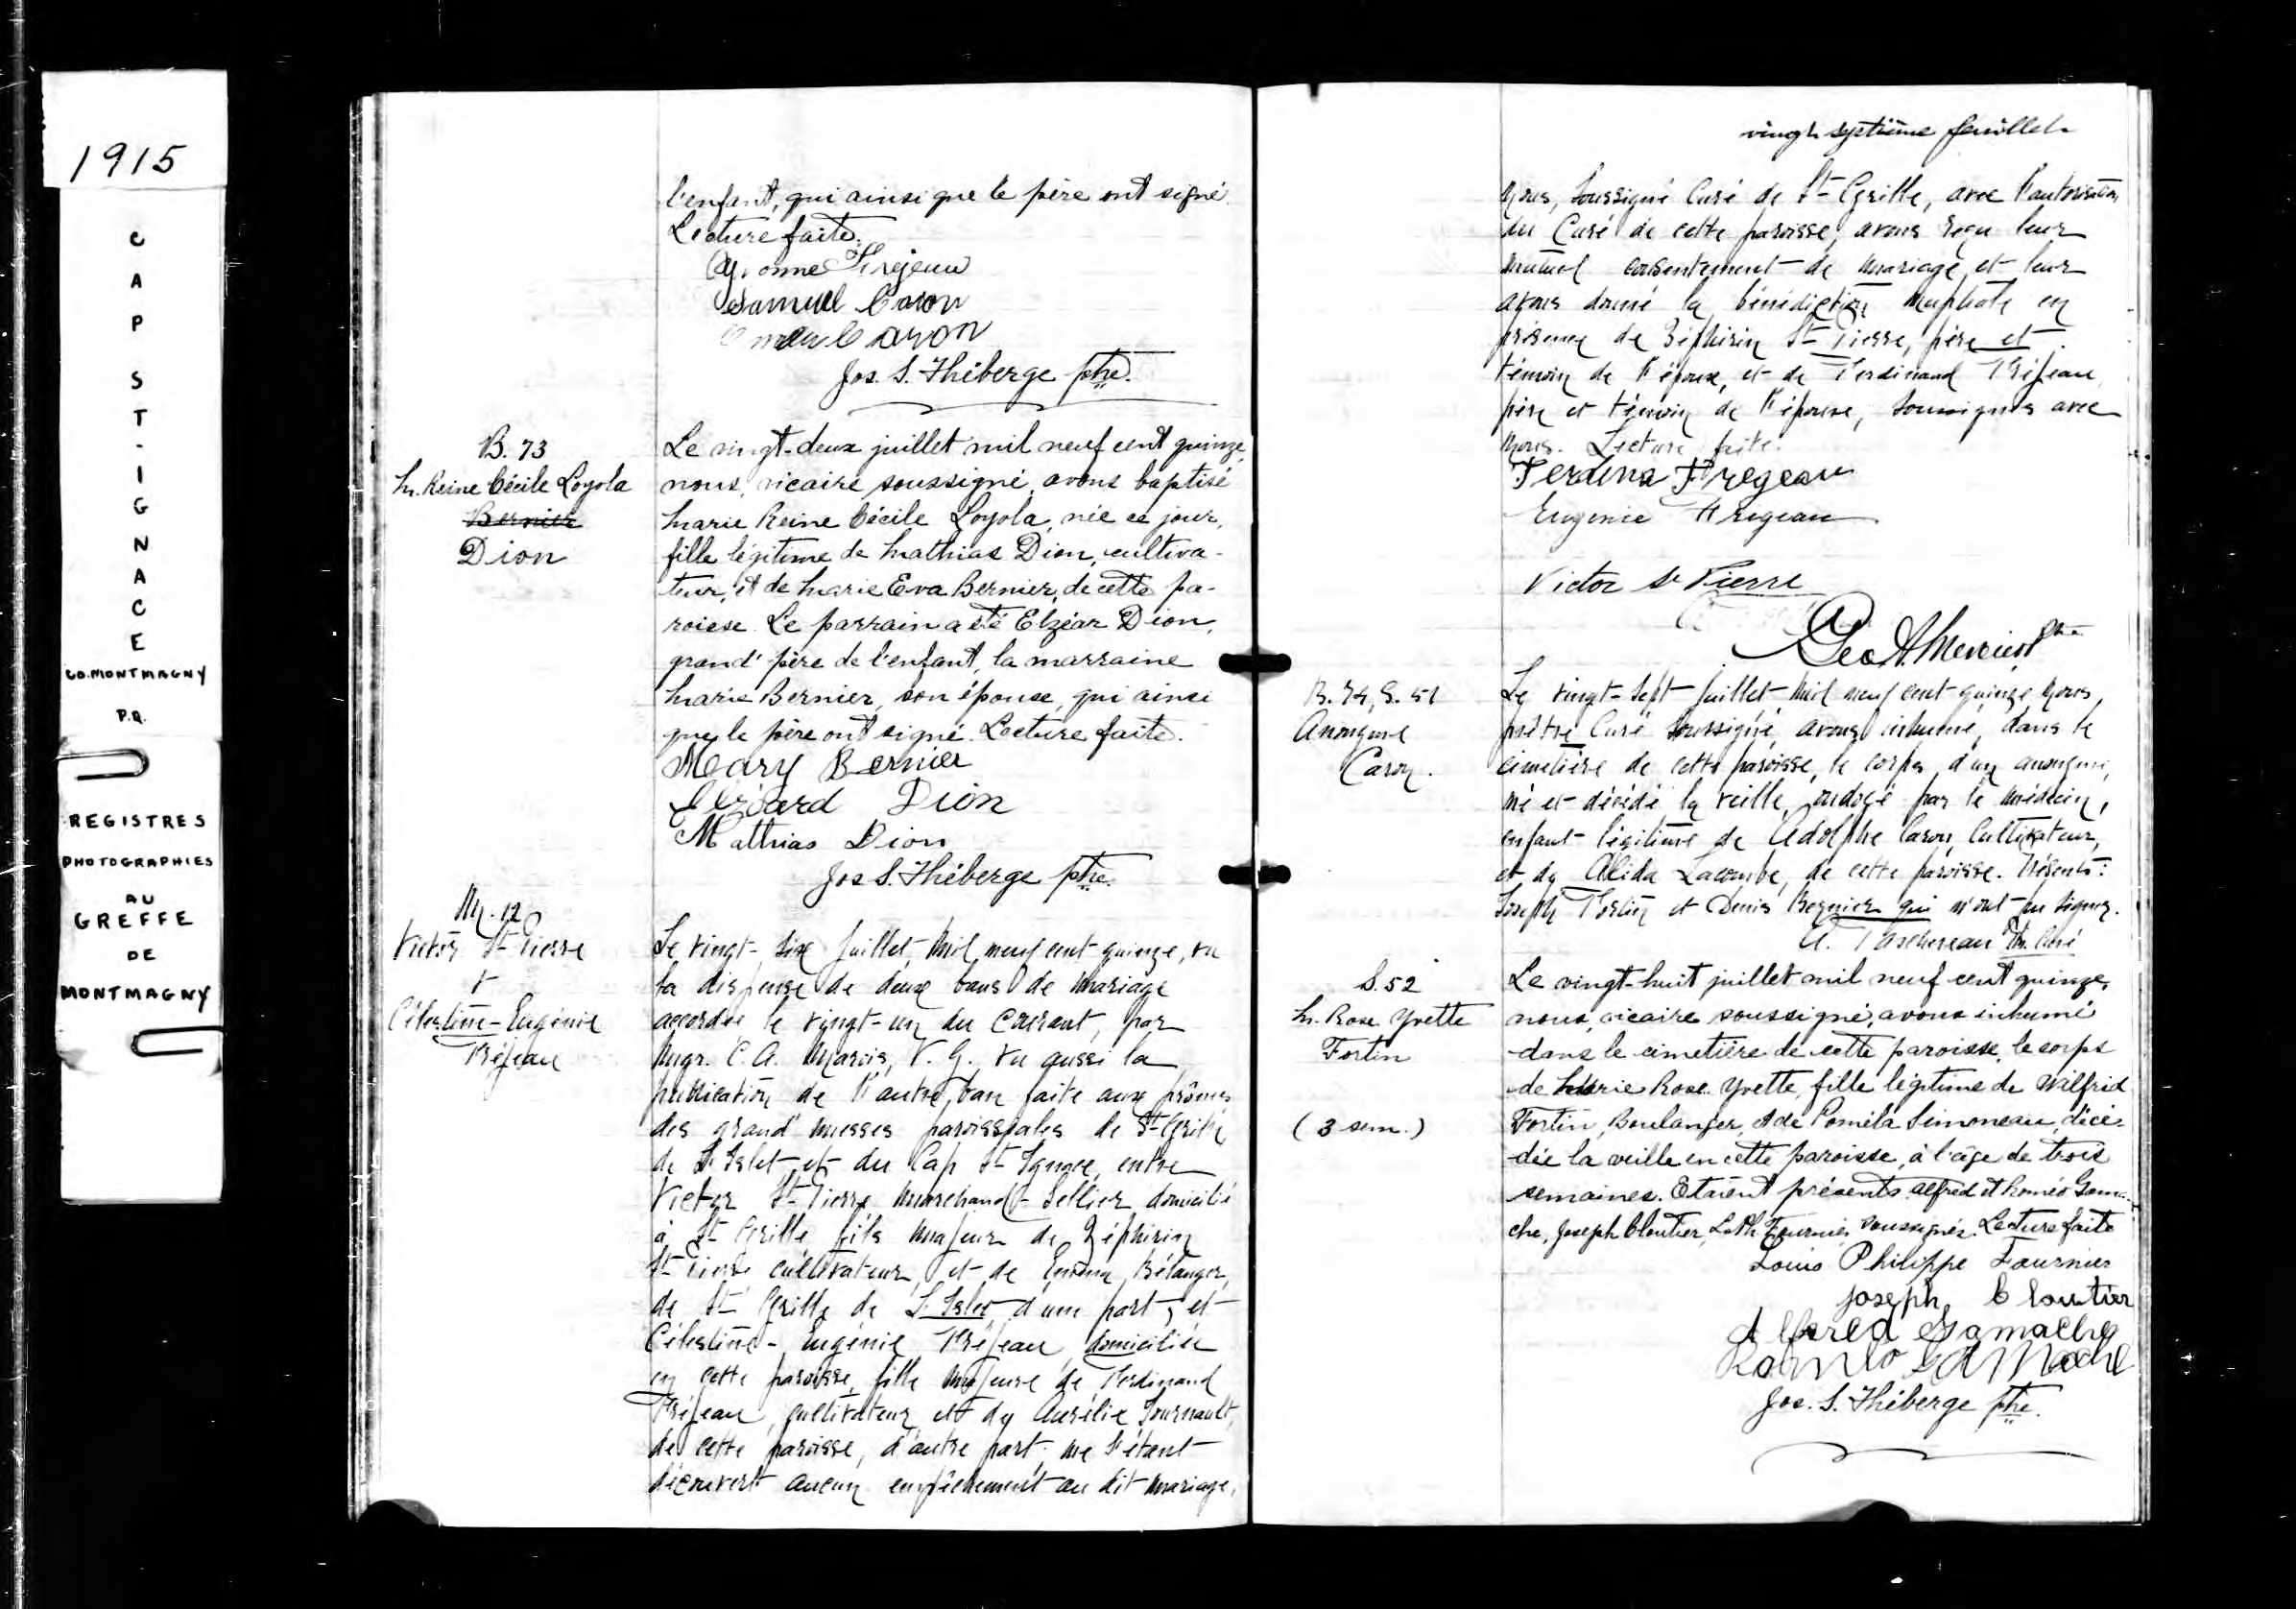 1915
CAP ST-IGNACE
CO. MONTMAGNY
P.Q.
REGISTRES
PHOTOGRAPHIES
AU
GREFFE
DE
MONTMAGNY
l'enfant, qui ainsi que le père ont signé.
Lecture faite.
Yvonne
Samuel Caron
Caron
Jos. S. Théberge ptre.
B. 73
M. Reine Cécile Loyola
Bernier
Dion
Le vingt-deux juillet mil neuf cent quinze,
nous, vicaire soussigné, avons baptisé
Marie Reine Cécile Loyola, née ce jour,
fille légitime de Mathias Dion, cultiva-
teur, et de Marie Eva Bernier, de cette pa-
roisse. Le parrain a été Elzéar Dion,
grand'père de l'enfant, la marraine
Marie Bernier, son épouse, qui ainsi
que le père ont signé. Lecture faite.
Mary Bernier
Dion
Mathias Dion
Jos S. Théberge ptre.
M. 12
Victor St-Pierre
&
Célestine-Eugénie
Préjean
Le vingt-six juillet, mil neuf cent quinze, vu
la dispense de deux bans de mariage
accordée le vingt-un du courant, par
Mgr. C. A. Marois, V. G., vu aussi la
publication de l'autre ban faite aux prônes
des grand'messes paroissiales de St-Cyrille
de L'Islet et du Cap St-Ignace, entre
Victor St-Pierre, marchand-sellier, domicilié
à St-Cyrille, fils majeur de Zéphirin
St-Pierre cultivateur, et de Emma Bélanger,
de St-Cyrille de L'Islet d'une part, et
Célestine-Eugénie Préjean domiciliée
en cette paroisse, fille majeure de Ferdinand
Préjean, cultivateur et de Aurélie Fournault,
de cette paroisse, d'autre part; ne s'étant
découvert aucun empêchement au dit mariage,
vingt septième feuillet
Nous, soussigné Curé de St-Cyrille, avec l'autorisation
du Curé de cette paroisse, avons reçu leur
mutuel consentement de mariage, et leur
avons donné la bénédiction nuptiale en
présence de Zéphirin St-Pierre, père et
témoin de l'époux, et de Ferdinand Préjean
père et témoin de l'épouse, soussignés avec
nous. Lecture faite.
Ferdina Fregeau
Eugenie Fregeau
Victor St Pierre
Geo A. Mercier Ptre
B. 74, S. 51
Anonyme
Caron.
Le vingt-sept juillet, mil neuf cent quinze, nous,
prêtre Curé soussigné, avons inhumé, dans le
cimetière de cette paroisse, le corps d'un anonyme,
né et décédé la veille, ondoyé par le médecin,
enfant légitime de Adolphe Caron, cultivateur,
et de Alida Lacombe, de cette paroisse. Présents:
Joseph Fortin et Denis Bernier qui n'ont pu signer.
Taschereau Ptr. Curé
S. 52
M. Rose Yvette
Fortin
(3 sem.)
Le vingt-huit juillet mil neuf cent quinze,
nous, vicaire soussigné, avons inhumé
dans le cimetière de cette paroisse, le corps
de Marie Rose Yvette, fille légitime de Wilfrid
Fortin, Boulanger, et de Poméla Simoneau, décé-
dée la veille en cette paroisse, à l'âge de trois
semaines. Etaient présents Alfred et Roméo Gama-
che, Joseph Cloutier, L. Ph. Fournier, soussignés. Lecture faite
Louis Philippe Fournier
Joseph Cloutier
Alfred Gamache
Gamache
Jos. S. Théberge ptre.